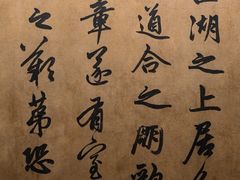 湖之上居
道合之朋
章遂有室
之艱第恐